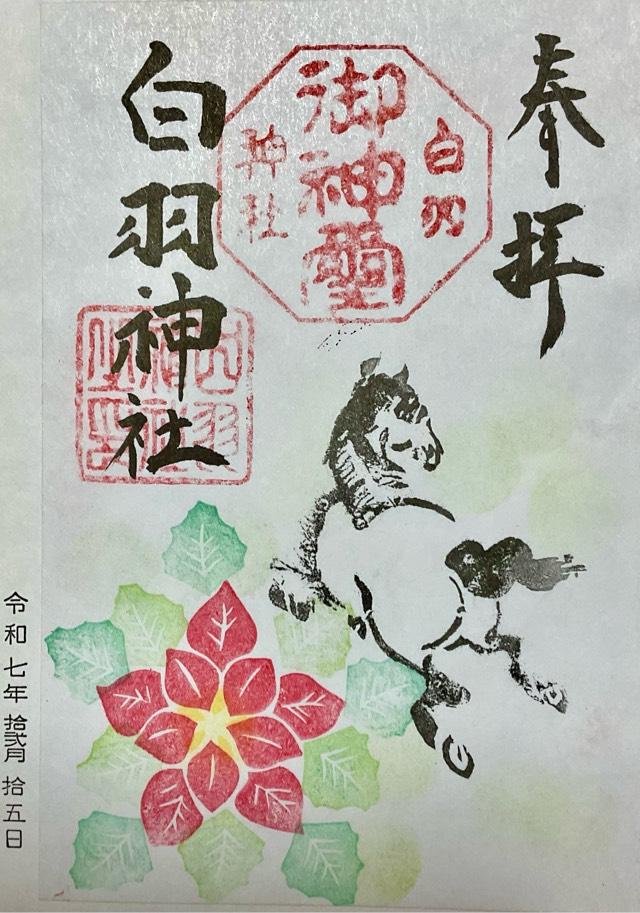 奉拝
白羽
御神璽
神社
白羽神社
令和七年 拾弐月 拾五日